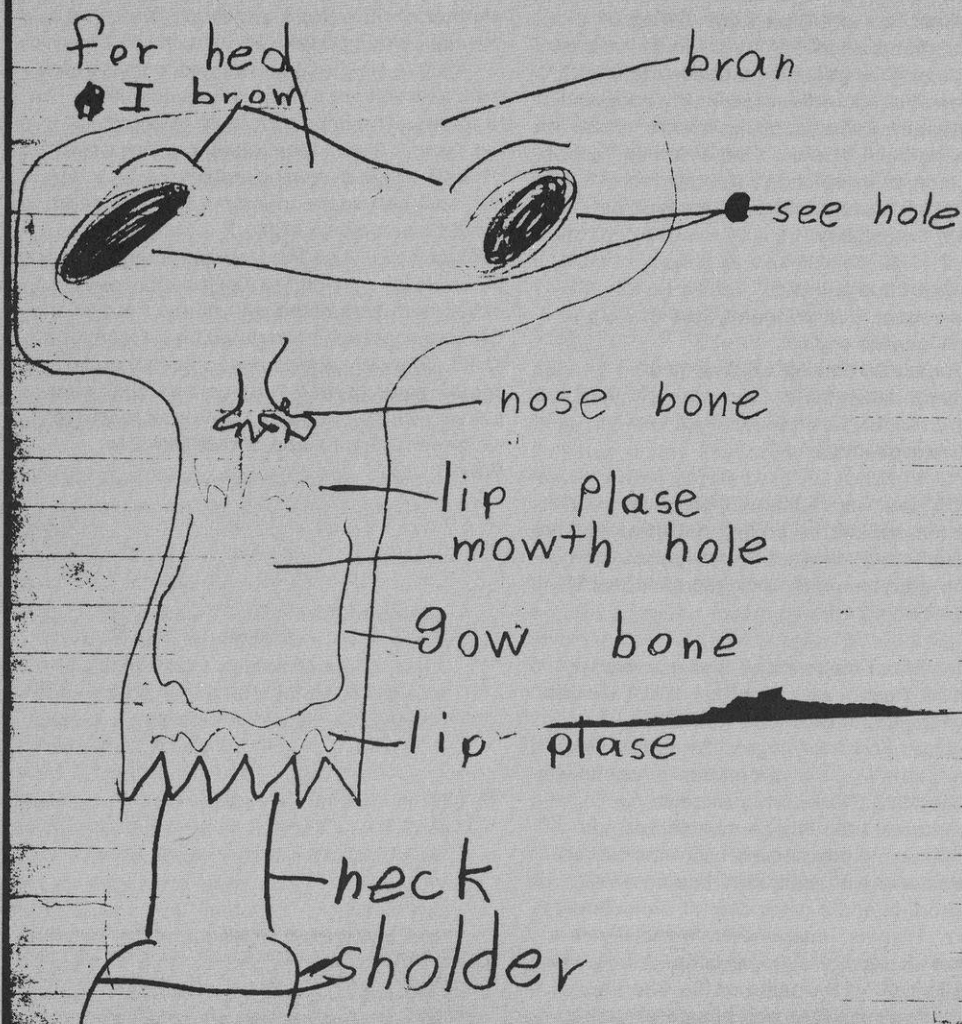 for hed
I brow
bran
see hole
nose bone
lip plase
mowth hole
gow bone
lip plase
neck
sholder